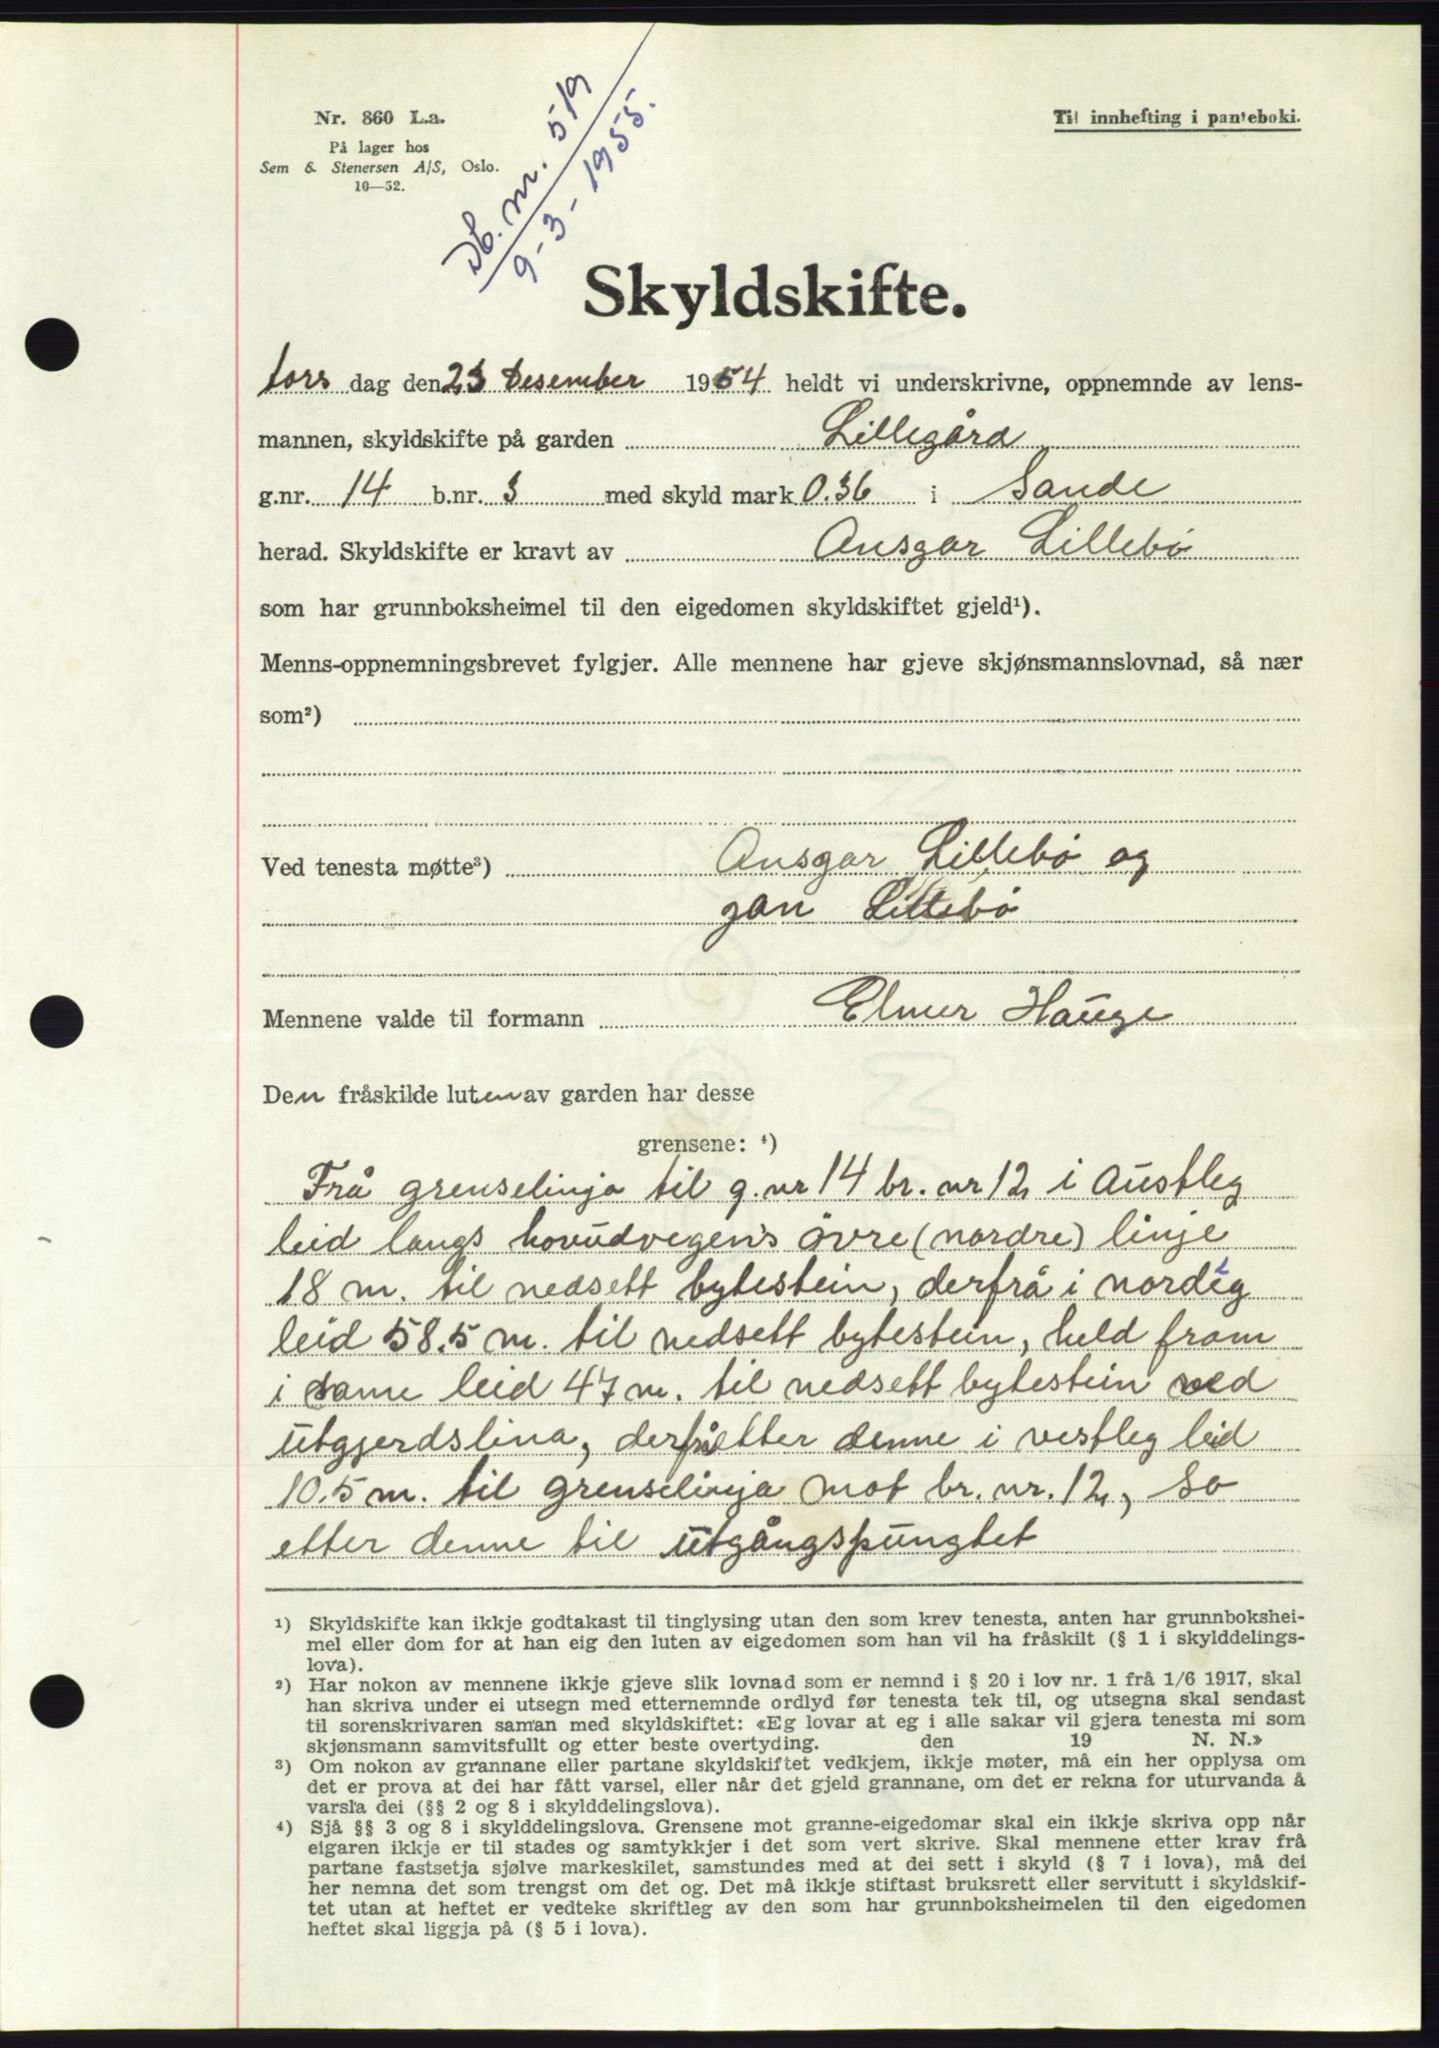 Nr. 860 L.a.
På lager hos
Sem & Stenersen A/S, Oslo.
10—52.
Db. nr. 519
9-3-1955.
Til innhefting i panteboki.
Skyldskifte.
tors dag den 23 Desember 1954 heldt vi underskrivne, oppnemnde av lens-
mannen, skyldskifte på garden Lillegård
g.nr. 14 b.nr. 3 med skyld mark 0.36 i Sande
herad. Skyldskifte er kravt av Ansgar Lillebö
som har grunnboksheimel til den eigedomen skyldskiftet gjeld¹).
Menns-oppnemningsbrevet fylgjer. Alle mennene har gjeve skjønsmannslovnad, så nær
som²)
Ved tenesta møtte³) Ansgar Lillebö og
Jan Lillebö
Mennene valde til formann Elmer Hauge
Den fråskilde luten av garden har desse
grensene: ⁴)
Frå grenselinja til g.nr 14 br.nr 12 i austleg
leid langs hovudvegens övre (nordre) linje
18 m. til nedsett bytestein, derfrå i nordleg
leid 58.5 m. til nedsett bytestein, held fram
i same leid 47 m. til nedsett bytestein ved
utgjerdslina, derfrå etter denne i vestleg leid
10.5 m. til grenselinja mot br.nr.12, so
etter denne til utgångspungtet
¹) Skyldskifte kan ikkje godtakast til tinglysing utan den som krev tenesta, anten har grunnbokshei-
mel eller dom for at han eig den luten av eigedomen som han vil ha fråskilt (§ 1 i skylddelings-
lova).
²) Har nokon av mennene ikkje gjeve slik lovnad som er nemnd i § 20 i lov nr. 1 frå 1/6 1917, skal
han skriva under ei utsegn med etternemnde ordlyd før tenesta tek til, og utsegna skal sendast
til sorenskrivaren saman med skyldskiftet: «Eg lovar at eg i alle sakar vil gjera tenesta mi som
skjønsmann samvitsfullt og etter beste overtyding. den 19 N. N.»
³) Om nokon av grannane eller partane skyldskiftet vedkjem, ikkje møter, må ein her opplysa om
det er prova at dei har fått varsel, eller når det gjeld grannane, om det er rekna for uturvanda å
varsla dei (§§ 2 og 8 i skylddelingslova).
⁴) Sjå §§ 3 og 8 i skylddelingslova. Grensene mot granne-eigedomar skal ein ikkje skriva opp når
eigaren ikkje er til stades og samtykkjer i det som vert skrive. Skal mennene etter krav frå
partane fastsetja sjølve markeskilet, samstundes med at dei sett i skyld (§ 7 i lova), må dei
her nemna det som trengst om det og. Det må ikkje stiftast bruksrett eller servitutt i skyldskif-
tet utan at heftet er vedteke skriftleg av den som har grunnboksheimelen til den eigedomen
heftet skal liggja på (§ 5 i lova).